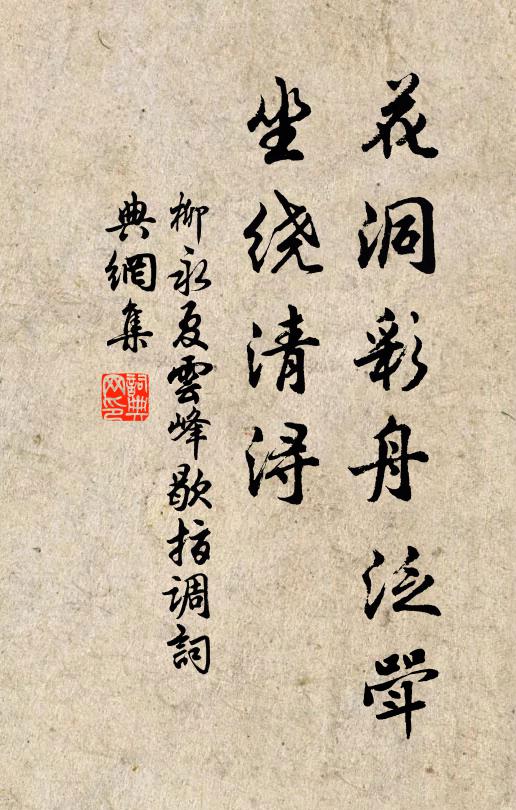 花洞彩舟泛斝
坐绕清浔
柳永夏雲峰歇指调詞
典網集
詞典网印